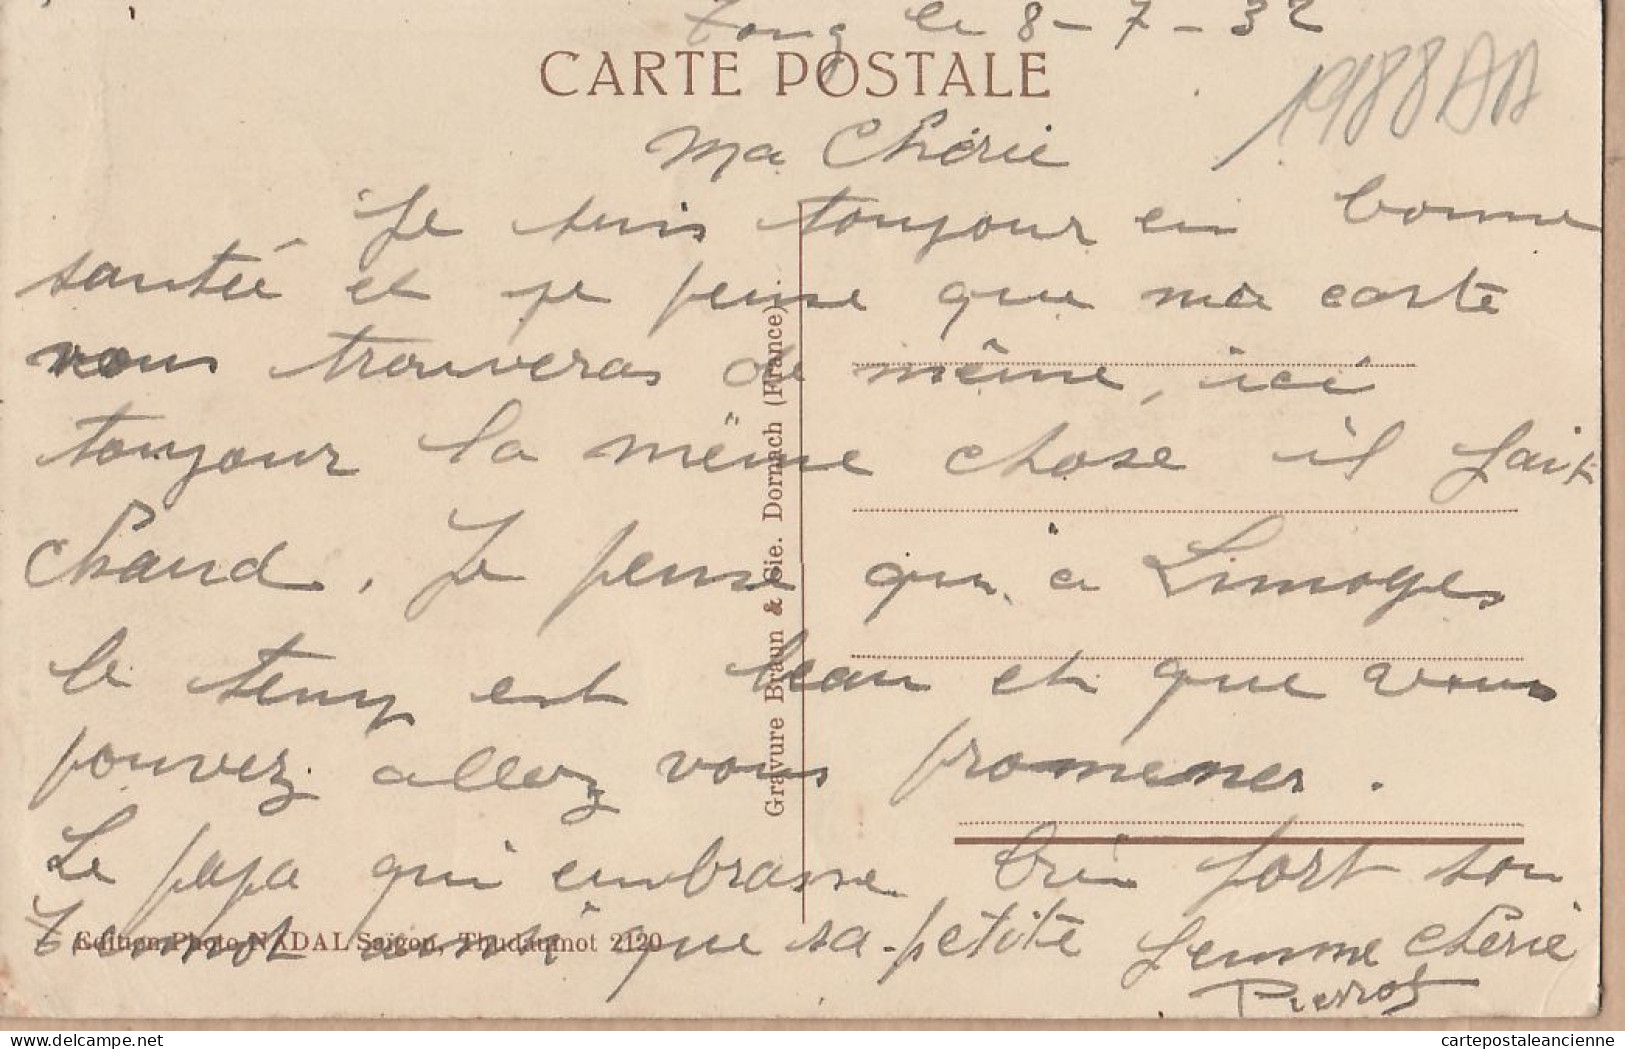 Tong le 8-7-32
CARTE POSTALE
1988AA
Ma Chérie
Je suis toujour en bonne
santée et je pense que ma carte
vous trouveras de même, ici
toujour la même chose il fait
chaud. Je pense qu'à Limoges
le temp est beau et que vous
pouvez allez vous promener.
Le papa qui embrasse bien fort son
ainsi que sa petite femme chérie
Pierrot
Gravure Braun & Cie. Dornach (France)
Edition Photo NADAL Saigon, Thudaumot 2120
delcampe.net
cartepostaleancienne